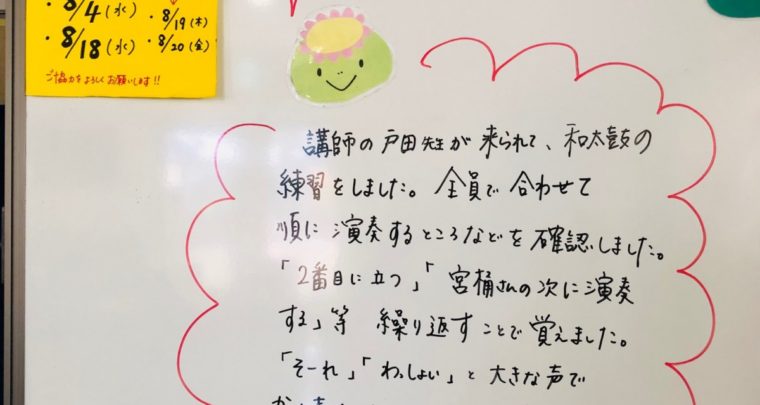 ・8/4(水) ・8/19(木)
・8/18(水) ・8/20(金)
ご協力をよろしくお願いします!!
講師の戸田先生が来られて、和太鼓の
練習をしました。全員で合わせて
順に演奏するところなどを確認しました。
「2番目に立つ」「宮桶さんの次に演奏
する」等 繰り返すことで覚えました。
「そーれ」「わっしょい」と大きな声で